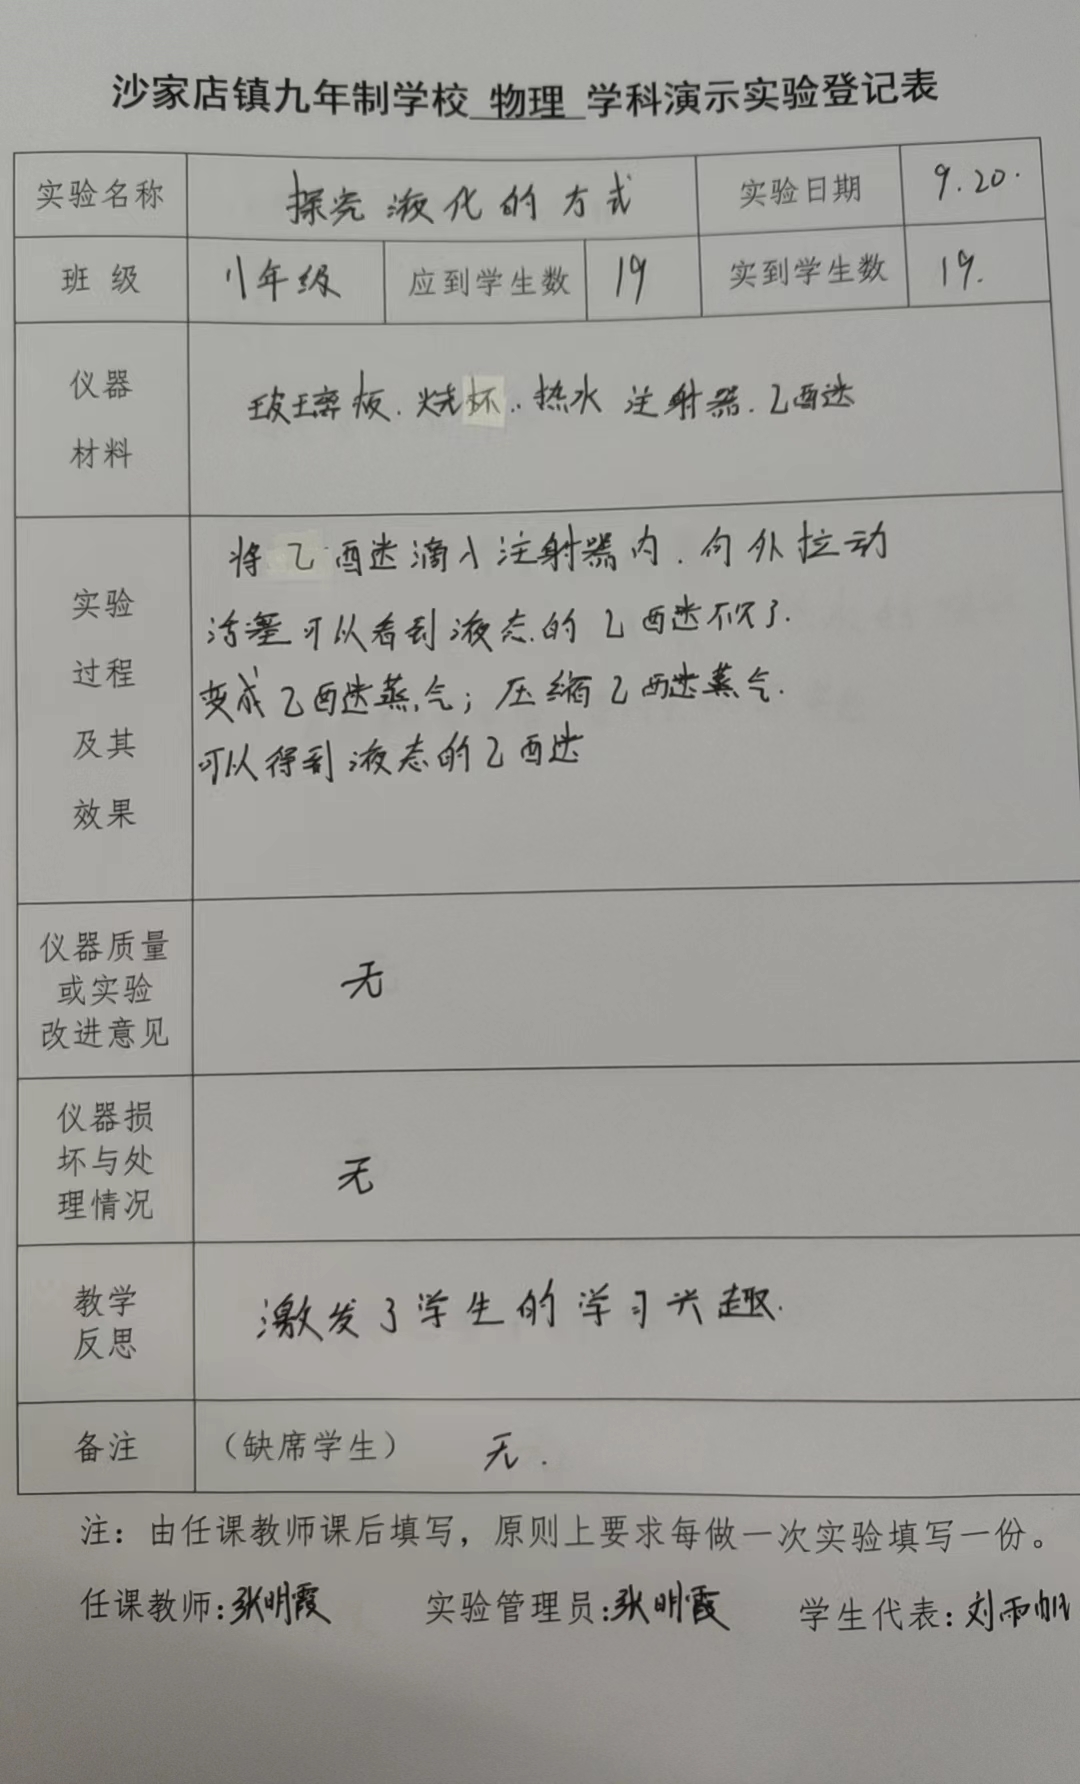 沙家店镇九年制学校 物理 学科演示实验登记表
实验名称 探究液化的方式 实验日期 9.20.
班 级 八年级 应到学生数 19 实到学生数 19.
仪器
材料
玻璃板.烧杯..热水 注射器.乙醚
实验
过程
及其
效果
将乙醚滴入注射器内.向外拉动
活塞可以看到液态的乙醚不见了.
变成乙醚蒸气;压缩乙醚蒸气.
可以得到液态的乙醚
仪器质量
或实验
改进意见
无
仪器损
坏与处
理情况
无
教学
反思
激发了学生的学习兴趣.
备注 (缺席学生) 无.
注:由任课教师课后填写,原则上要求每做一次实验填写一份。
任课教师:张明霞 实验管理员:张明霞 学生代表:刘雨帆